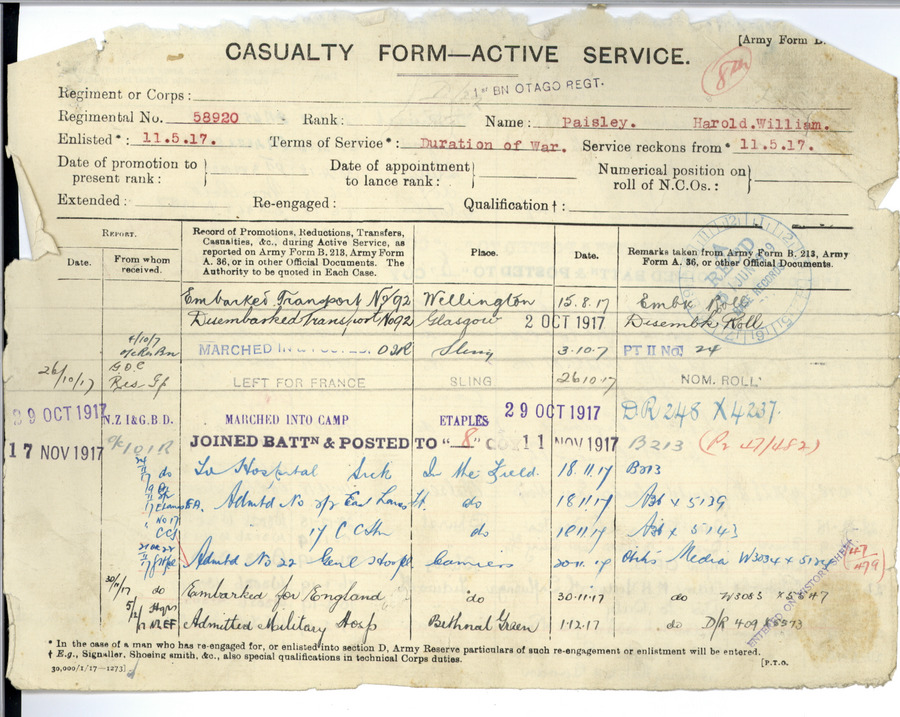 [Army Form B.
CASUALTY FORM—ACTIVE SERVICE.
8th
1st BN OTAGO REGT.
Regiment or Corps :
Regimental No. 58920 Rank : Name : Paisley. Harold.William.
Enlisted* : 11.5.17. Terms of Service* : Duration of War. Service reckons from* 11.5.17.
Date of promotion to present rank : Date of appointment to lance rank : Numerical position on roll of N.C.Os. :
Extended : Re-engaged : Qualification† :
REPORT.
Date. From whom received. Record of Promotions, Reductions, Transfers, Casualties, &c., during Active Service, as reported on Army Form B. 213, Army Form A. 36, or in other Official Documents. The Authority to be quoted in Each Case. Place. Date. Remarks taken from Army Form B. 213, Army Form A. 36, or other Official Documents.
Embarked Transport No 92 Wellington 15.8.17 Embk Roll
Disembarked Transport No 92 Glasgow 2 OCT 1917 Disembk Roll
4/10/7 MARCHED IN & POSTED. Sling 3.10.7 PT II No. 24
26/10/17 G.O.C Res Gp LEFT FOR FRANCE SLING 26.10.17 NOM. ROLL
29 OCT 1917 N.Z I&G.B D. MARCHED INTO CAMP ETAPLES 29 OCT 1917 DR 248 X4237.
17 NOV 1917 O/C 1 O I R JOINED BATTN & POSTED TO "8" CO. 11 NOV 1917 B213 (Pr 47/482)
do To Hospital Sick In the Field 18.11.17 B213
Admtd No 2/1 East Lancs do 18.11.17 A36 x 5139
No 17 CCS 17 C C Stn do 18.11.17 A36 x 5143
Admtd No 22 Genl Hospl Camiers 20.11.17 W3034 x
47/479
30/11/17 do Embarked for England do 30.11.17 do W3083 x 5547
5/12/17 Hqrs NZEF Admitted Military Hosp Bethnal Green 1.12.17 do D/R 409 x 5573
ENTERED ON HISTORY SHEET
* In the case of a man who has re-engaged for, or enlisted into section D, Army Reserve particulars of such re-engagement or enlistment will be entered.
† E.g., Signaller, Shoeing smith, &c., also special qualifications in technical Corps duties.
30,000/1/17—1273] [P.T.O.